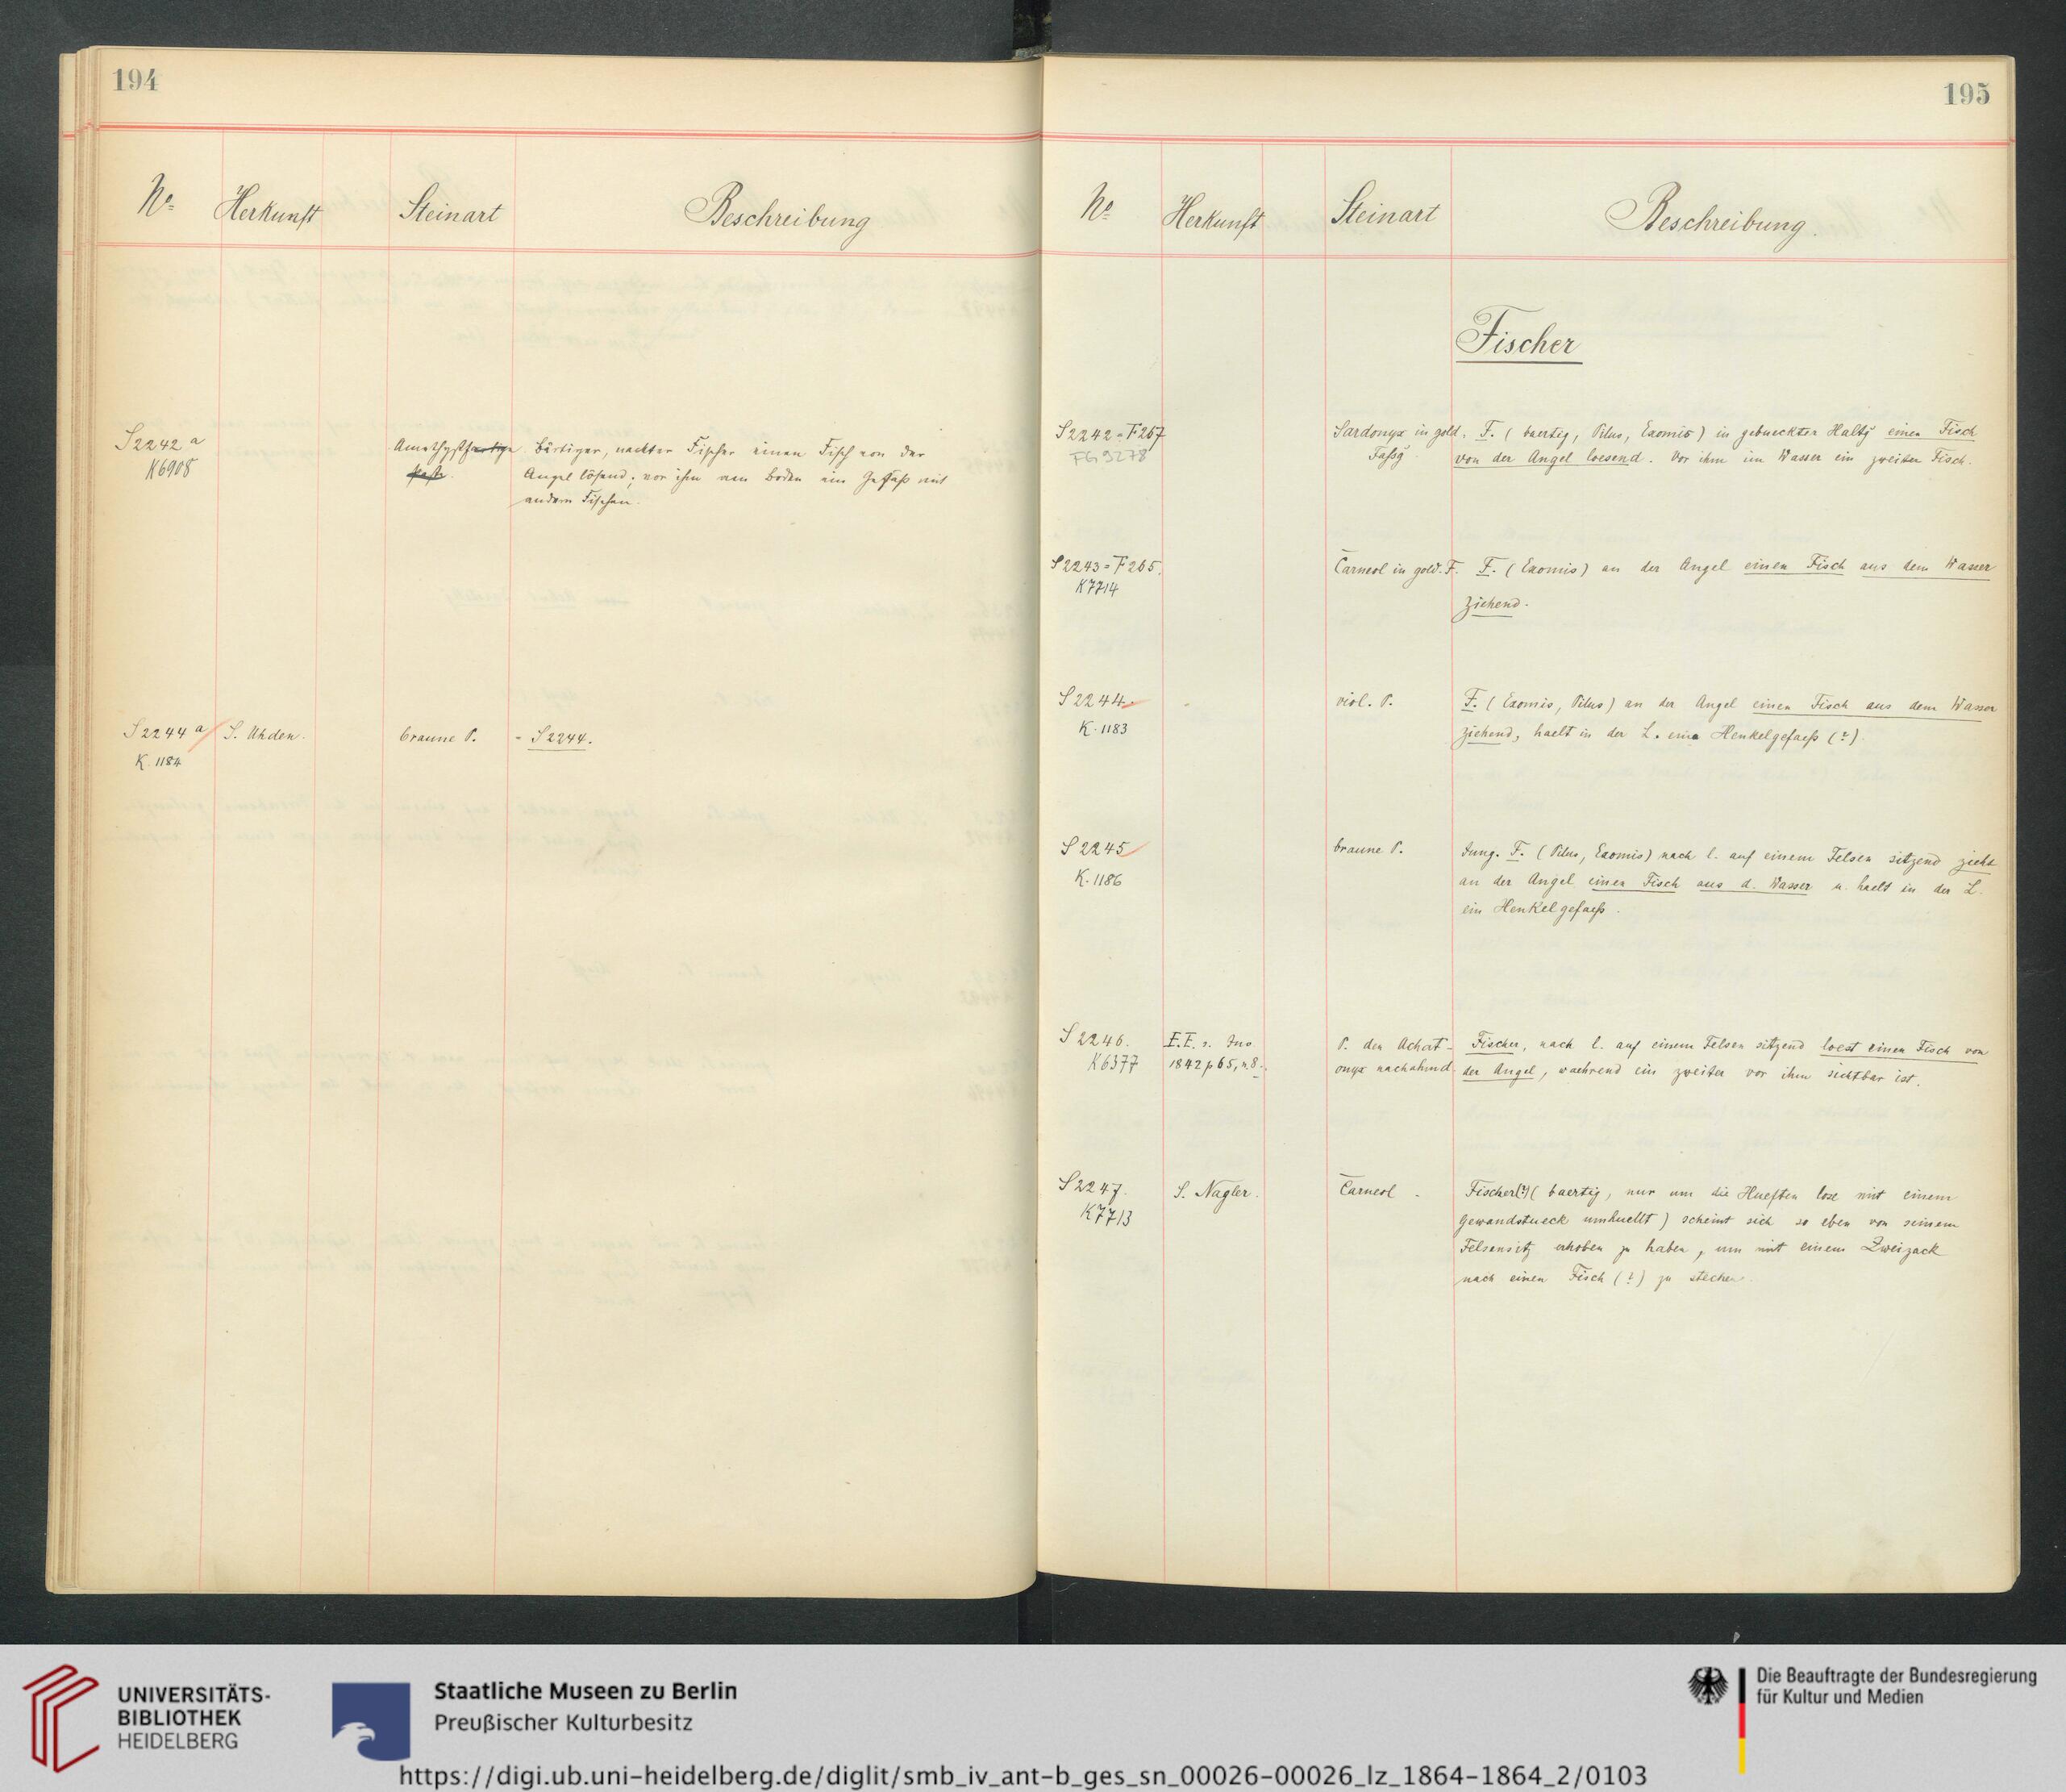 194
No Herkunft Steinart Beschreibung
S 2242 a
K6908
Amethystartige
Paste.
Bärtiger, nackter Fischer einen Fisch von der
Angel lösend; vor ihm am Boden ein Gefäß mit
andern Fischen.
S 2244 a S. Uhden. braune P. = S 2244.
K. 1184
195
No Herkunft Steinart Beschreibung.
Fischer
S 2242 = F 267
FG 9278
Sardonyx in gold.
Fassg.
F. (baertig, Pilus, Exomis) in gebueckter Haltg einen Fisch
von der Angel loesend. Vor ihm im Wasser ein zweiter Fisch.
S 2243 = F 265.
K7714
Carneol in gold. F.
F. (Exomis) an der Angel einen Fisch aus dem Wasser
ziehend.
S 2244.
K. 1183
viol. P.
F. (Exomis, Pilus) an der Angel einen Fisch aus dem Wasser
ziehend, haelt in der L. ein Henkelgefaeß (?).
S 2245
K. 1186
braune P.
Jung. F. (Pilus, Exomis) nach l. auf einem Felsen sitzend zieht
an der Angel einen Fisch aus d. Wasser u. haelt in der L.
ein Henkelgefaeß.
S 2246.
K6377
1842 p 65, n 8.
P. den Achat-
onyx nachahmend
Fischer, nach l. auf einem Felsen sitzend loest einen Fisch von
der Angel, waehrend ein zweiter vor ihm sichtbar ist.
S 2247.
K7713
S. Nagler.
Carneol.
Fischer(?) (baertig, nur um die Hueften lose mit einem
Gewandstueck umhuellt) scheint sich so eben von seinem
Felsensitz erhoben zu haben, um mit einem Zweizack
nach einen Fisch (?) zu stechen.
UNIVERSITÄTS-
BIBLIOTHEK
HEIDELBERG
Staatliche Museen zu Berlin
Preußischer Kulturbesitz
Die Beauftragte der Bundesregierung
für Kultur und Medien
https://digi.ub.uni-heidelberg.de/diglit/smb_iv_ant-b_ges_sn_00026-00026_lz_1864-1864_2/0103